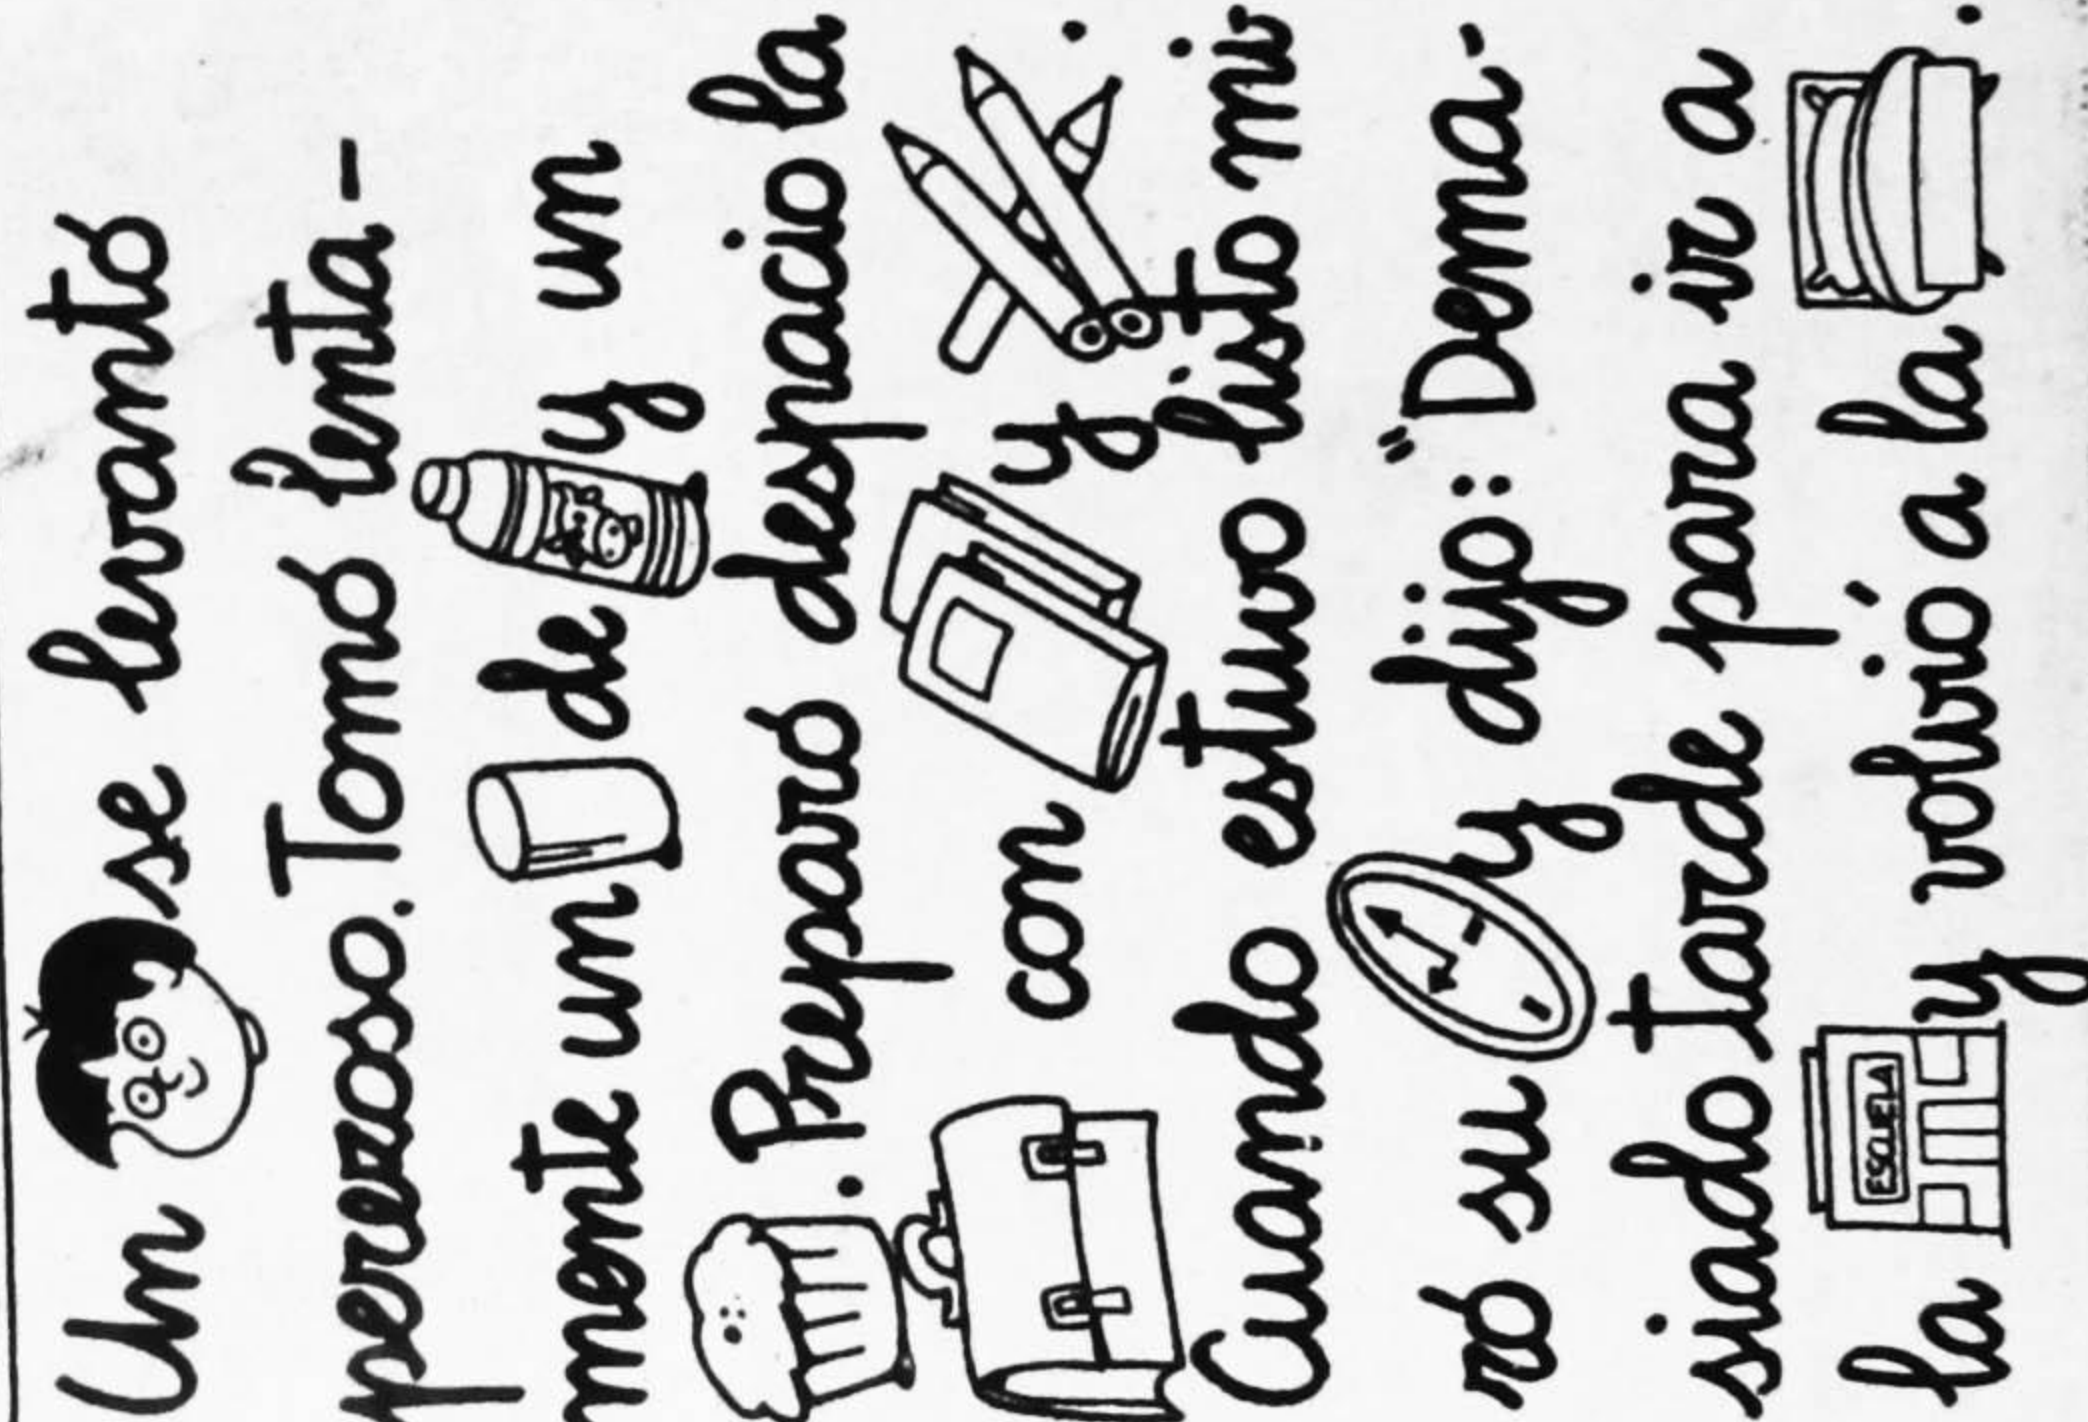 Un se levantó
perezoso. Tomó lenta-
mente un de y un
. Preparó despacio la
con y .
Cuando estuvo listo mi
ró su y dijo: "Dema-
siado tarde para ir a
la ESCUELA y volvió a la .